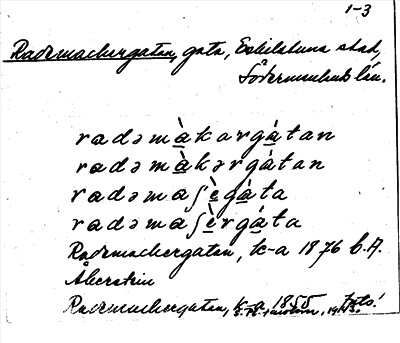 1-3
Rademachergatan, gata, Eskilstuna stad,
Södermanlands län.
radə mɑ̀kargátan
radə mɑ̀kərgátan
radə maʃègáta
radə maʃèrgáta
Rademachergatan, k-a 1876 b.A.
Åkerstein
Rademachergatan, k-a 1855